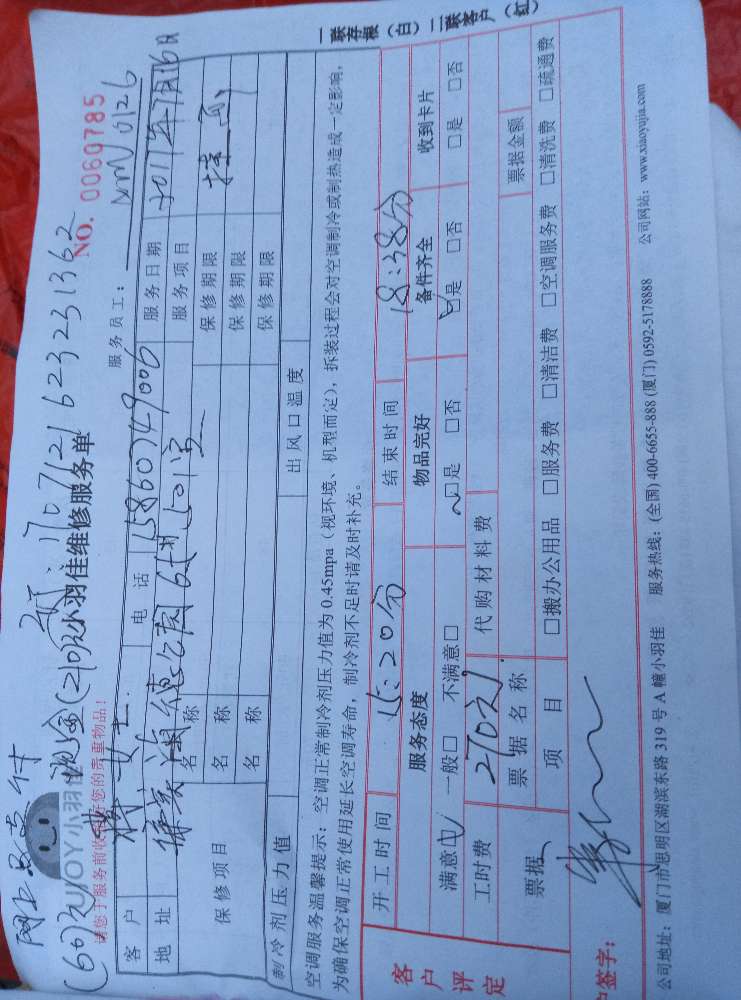 网上已支付 (60)元 现金(210)元
170712162323 1362
ZUIJOY小羽佳
小羽佳维修服务单
NO. 0060785
请您于服务前收好您的贵重物品!
服务员工: 0126
客户 女士 电话 15860749006 服务日期 2017年7月16日
地址 6# 501室 服务项目
保修项目 名称 保修期限
名称 保修期限
名称 保修期限
制冷剂压力值 出风口温度
空调服务温馨提示:空调正常制冷剂压力值为0.45mpa(视环境、机型而定),拆装过程会对空调制冷或制热造成一定影响,
为确保空调正常使用延长空调寿命,制冷剂不足时请及时补充。
一联存根(白)二联客户(红)
客户评定
开工时间 15:20分 结束时间 18:38分
服务态度 物品完好 备件齐全 收到卡片
满意☑ 一般□ 不满意□ ☑是 □否 ☑是 □否 □是 □否
工时费 270元 代购材料费
票据 票据名称 票据金额
项目 □搬办公用品 □服务费 □清洁费 □空调服务费 □清洗费 □疏通费
户签字:
公司地址:厦门市思明区湖滨东路319号A幢小羽佳 服务热线:(全国)400-6655-888(厦门)0592-5178888 公司网站:www.xiaoyujia.com